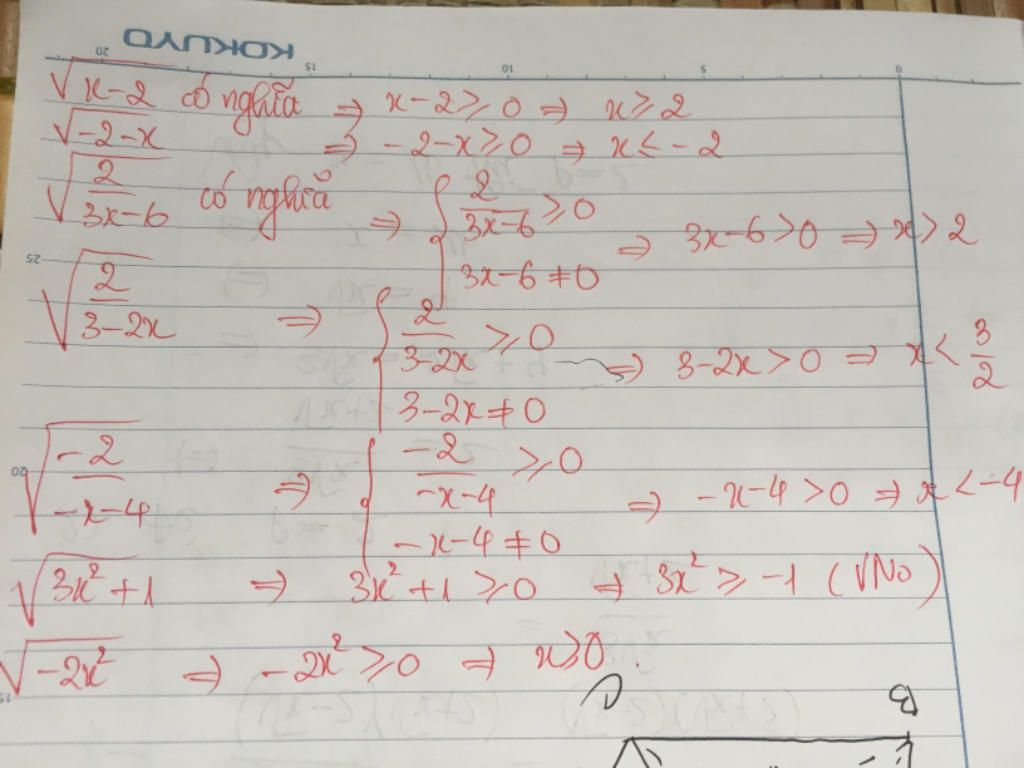 KOKUYO
20 15 10 5 0
√(x-2) có nghĩa ⇒ x-2 ≥ 0 ⇒ x ≥ 2
√(-2-x) ⇒ -2-x ≥ 0 ⇒ x ≤ -2
√(2/(3x-6)) có nghĩa ⇒ { 2/(3x-6) ≥ 0 ; 3x-6 ≠ 0 ⇒ 3x-6 > 0 ⇒ x > 2
25
√(2/(3-2x)) ⇒ { 2/(3-2x) ≥ 0 ; 3-2x ≠ 0 ⇒ 3-2x > 0 ⇒ x < 3/2
20
√(-2/(-x-4)) ⇒ { -2/(-x-4) ≥ 0 ; -x-4 ≠ 0 ⇒ -x-4 > 0 ⇒ x < -4
√(3x²+1) ⇒ 3x²+1 ≥ 0 ⇒ 3x² ≥ -1 (VNo)
√(-2x²) ⇒ -2x² ≥ 0 ⇒ x ≥ 0.
15
B